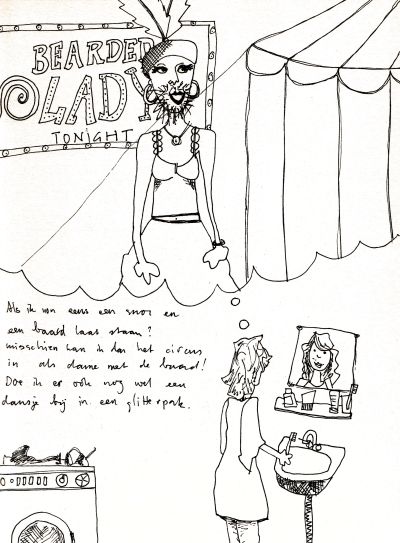 BEARDED
LADY
TONIGHT
Als ik nou eens een snor en
een baard laat staan?
misschien kan ik dan het circus
in als dame met de baard!
Doe ik er ook nog wel een
dansje bij in een glitterpak.